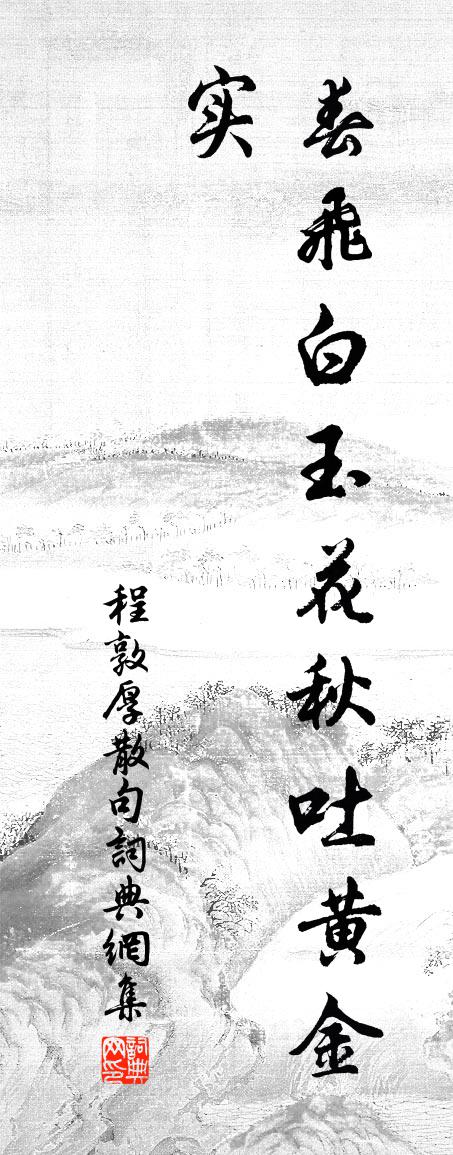 春飛白玉花秋吐黄金
实
程敦厚散句詞典網集
詞典网印